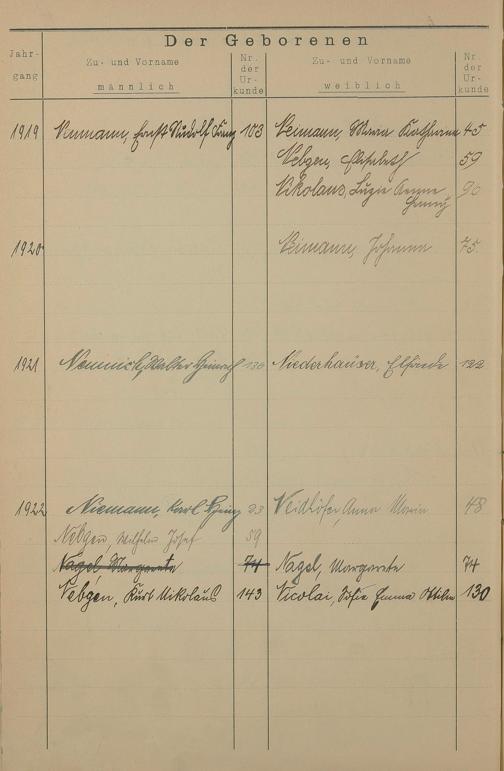 Der Geborenen
Jahrgang
Zu- und Vorname
männlich
Nr. der Urkunde
Zu- und Vorname
weiblich
Nr. der Urkunde
1919 Neumann, Ernst Rudolf 103 Neimann, Maria Katharina 45
Nebgen, Elisabeth 59
Nikolaus, Luzie Anna 90
Henny
1920 Neimann, Johanna 75
1921 Nemnich, Walter Heinrich 130 Niederhäuser, Elfriede 122
1922 Niemann, Karl Heinz 23 Neidhöfer, Anna Maria 48
Nebgen, Wilhelm Josef 59
Nagel Margarete 74 Nagel, Margarete 74
Nebgen, Kurt Nikolaus 143 Nicolai, Sofie Emma Ottilie 130